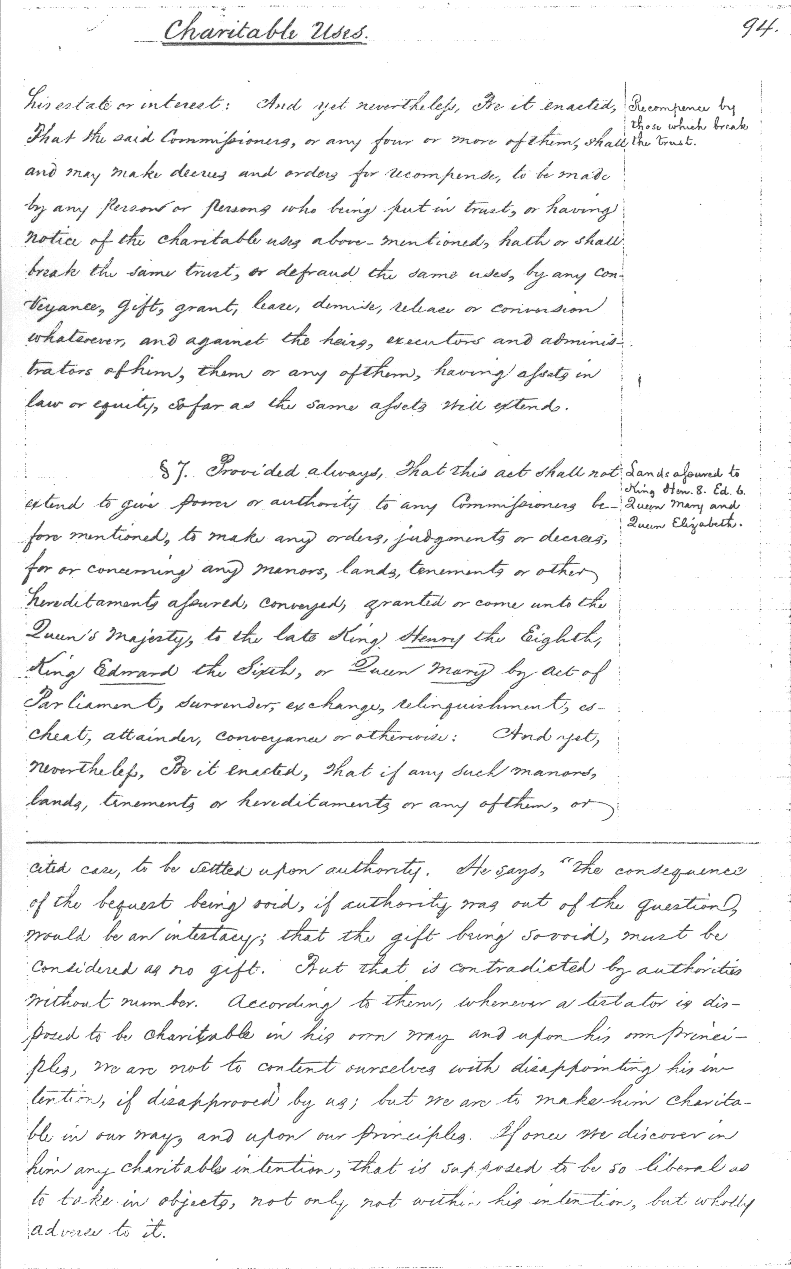 Charitable Uses.
94.
his estate or interest: And yet nevertheless, Be it enacted,
That the said Commissioners, or any four or more of them, shall
and may make decrees and orders for recompense, to be made
by any Person or Persons who being put in trust, or having
notice of the charitable uses above-mentioned, hath or shall
break the same trust, or defraud the same uses, by any con-
veyance, gift, grant, lease, demise, release or conversion
whatsoever, and against the heirs, executors and adminis-
trators of him, them or any of them, having assets in
law or equity, so far as the same assets will extend.
Recompence by
those which break
the trust.
§ 7. Provided always, That this act shall not
extend to give power or authority to any Commissioners be-
fore mentioned, to make any orders, judgments or decrees,
for or concerning any manors, lands, tenements or other
hereditaments assured, conveyed, granted or come unto the
Queen's Majesty, to the late King Henry the Eighth,
King Edward the Sixth, or Queen Mary by act of
Parliament, surrender, exchange, relinquishment, es-
cheat, attainder, conveyance or otherwise: And yet,
nevertheless, Be it enacted, that if any such manors,
lands, tenements or hereditaments or any of them, or
Lands assured to
King Hen. 8. Ed. 6.
Queen Mary and
Queen Elizabeth.
cited case, to be settled upon authority. He says, "the consequence
of the bequest being void, if authority was out of the question,
would be an intestacy; that the gift being so void, must be
considered as no gift. But that is contradicted by authorities
without number. According to them, whenever a testator is dis-
posed to be charitable in his own way and upon his own princi-
ples, we are not to content ourselves with disappointing his in-
tention, if disapproved by us; but we are to make him charita-
ble in our way, and upon our principles. If once we discover in
him any charitable intention, that is supposed to be so liberal as
to take in objects, not only not within his intention, but wholly
adverse to it.